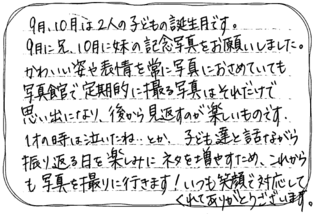 9月、10月は2人の子どもの誕生月です。
9月に兄、10月に妹の記念写真をお願いしました。
かわいい姿や表情を常に写真におさめていても
写真館で定期的に撮る写真はそれだけで
思い出になり、後から見返すのが楽しいものです。
1才の時は泣いたね…とか、子ども達と話ながら
振り返る日を楽しみにネタを増やすため、これから
も写真を撮りに行きます！いつも笑顔で対応して
くれてありがとうございます。